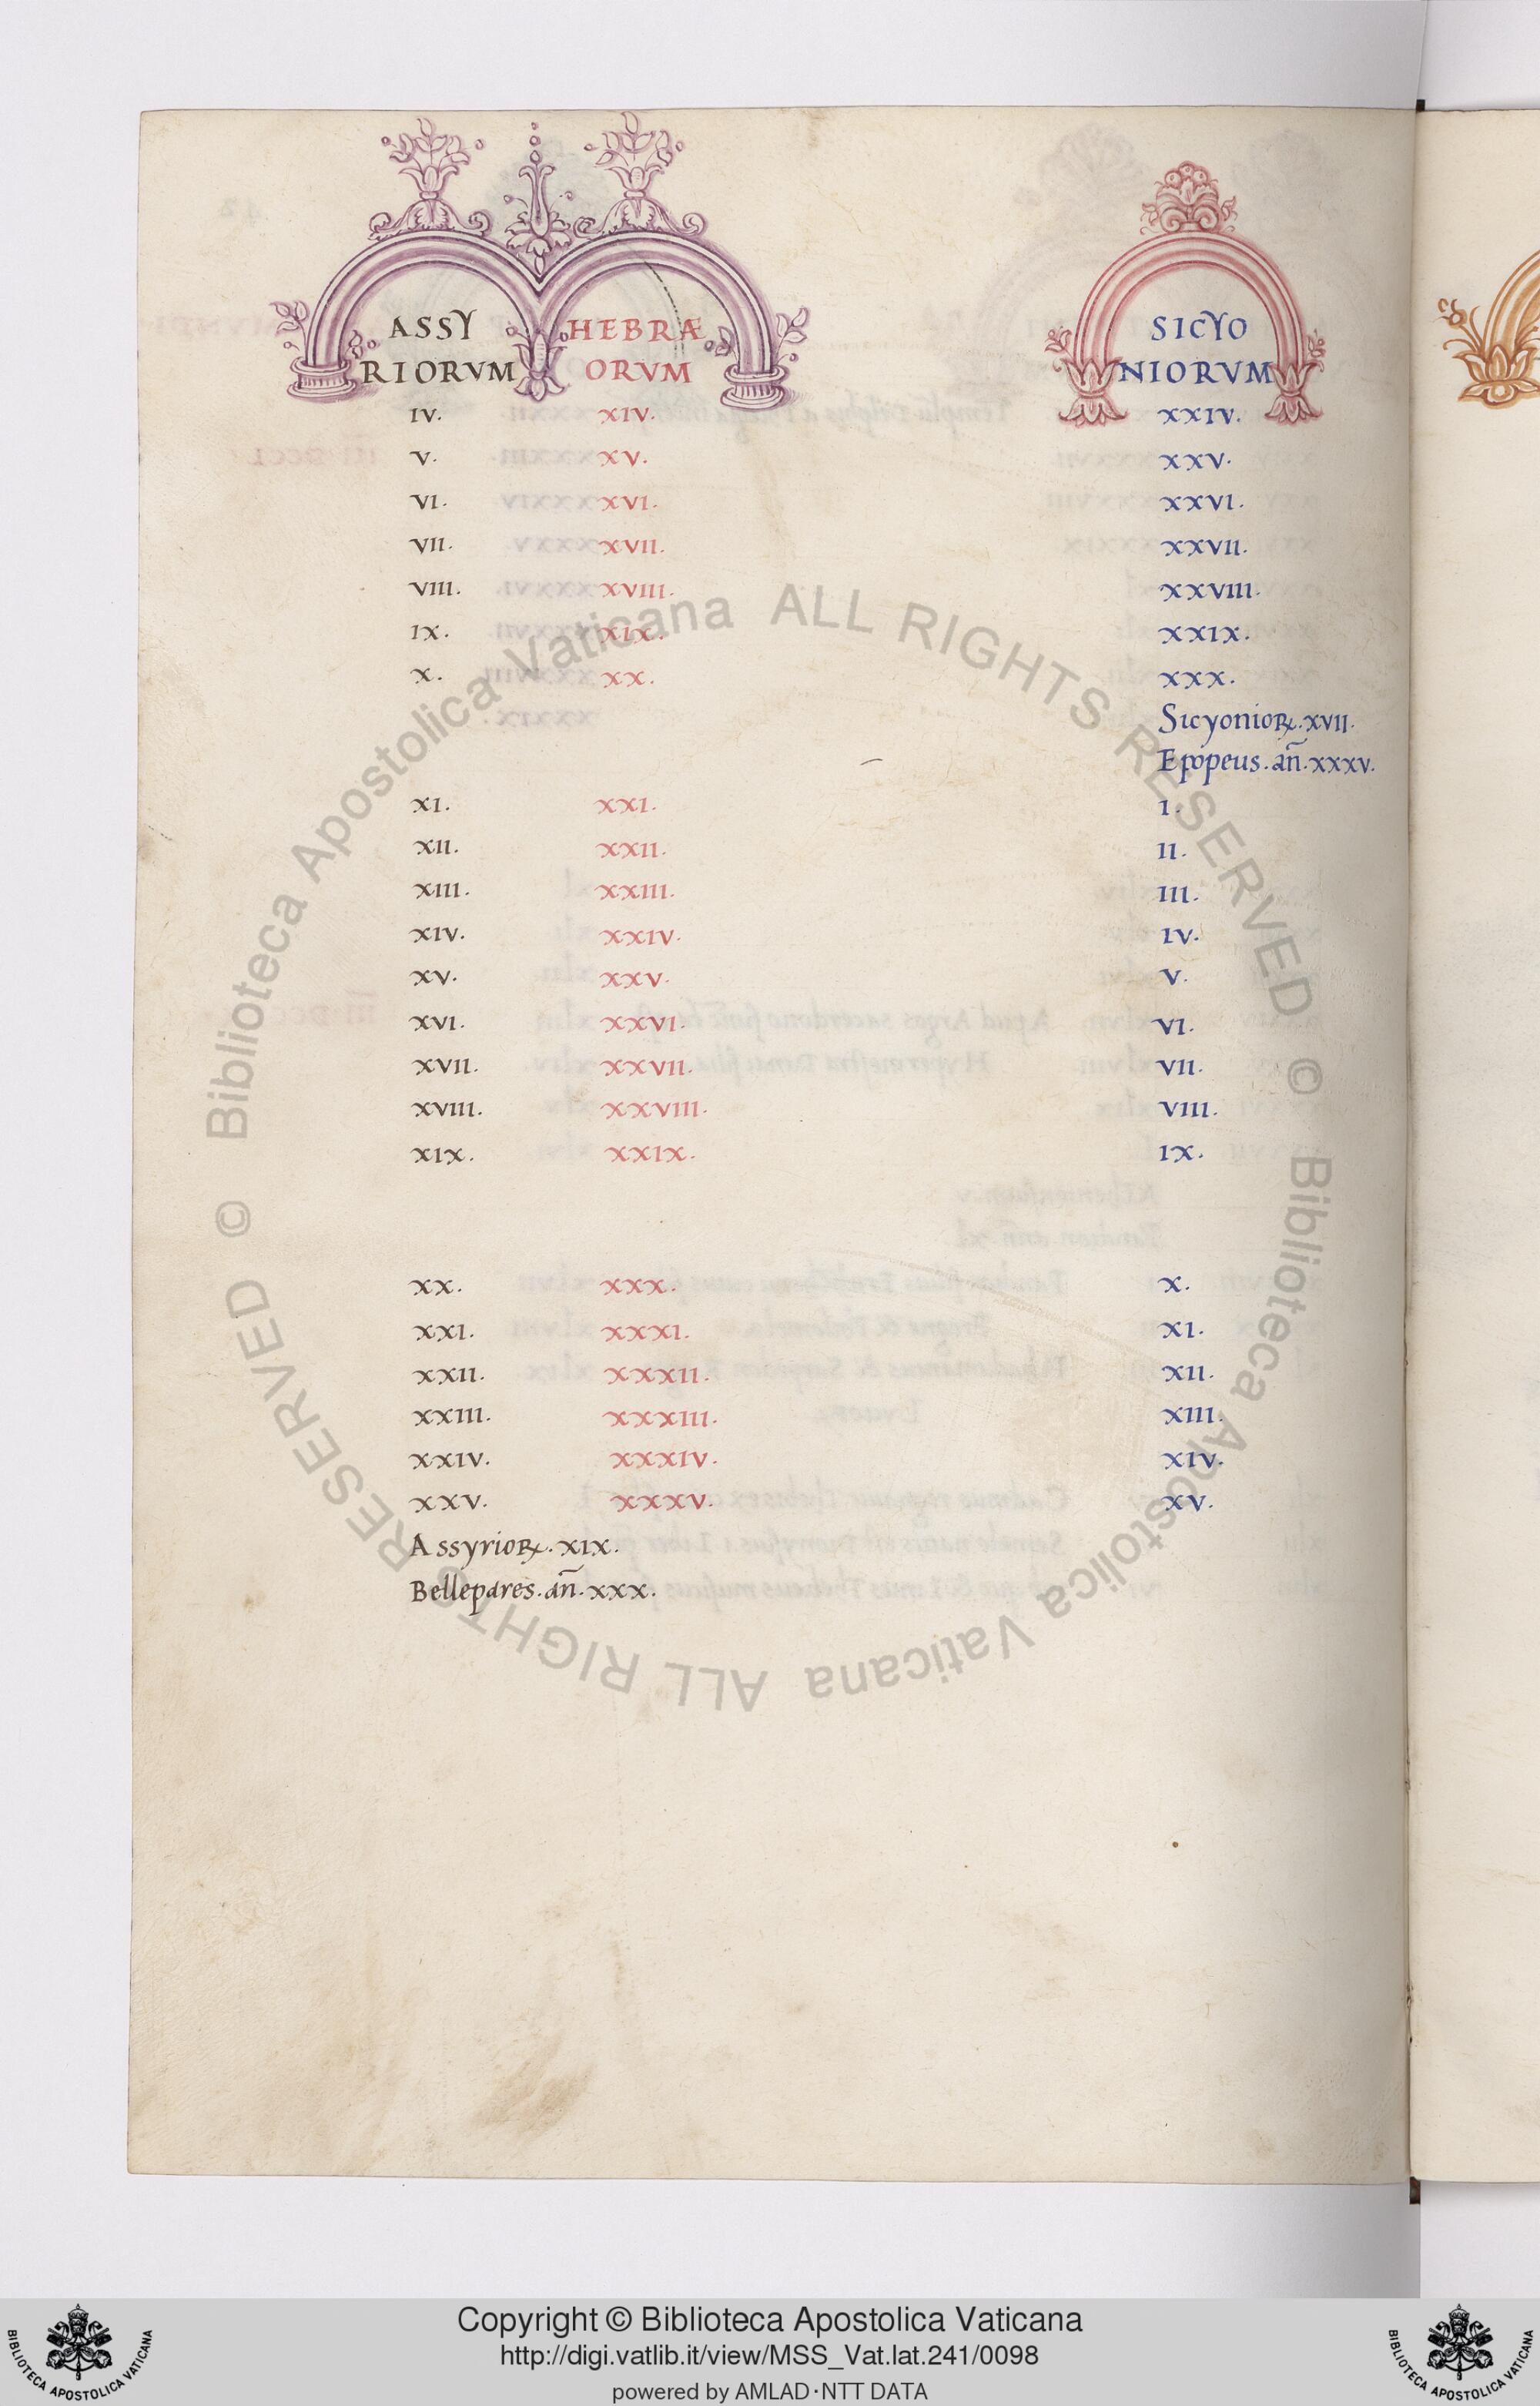 ASSY HEBRÆ SICYO
RIORVM ORVM NIORVM
IV. XIV. XXIV.
V. XV. XXV.
VI. XVI. XXVI.
VII. XVII. XXVII.
VIII. XVIII. XXVIII.
IX. XIX. XXIX.
X. XX. XXX.
Sicyonioꝝ. XVII.
Epopeus. an̄. XXXV.
XI. XXI. I.
XII. XXII. II.
XIII. XXIII. III.
XIV. XXIV. IV.
XV. XXV. V.
XVI. XXVI. VI.
XVII. XXVII. VII.
XVIII. XXVIII. VIII.
XIX. XXIX. IX.
XX. XXX. X.
XXI. XXXI. XI.
XXII. XXXII. XII.
XXIII. XXXIII. XIII.
XXIV. XXXIV. XIV.
XXV. XXXV. XV.
Assyrioꝝ. XIX.
Bellepares. an̄. XXX.
© Biblioteca Apostolica Vaticana ALL RIGHTS RESERVED
© Biblioteca Apostolica Vaticana ALL RIGHTS RESERVED
Copyright © Biblioteca Apostolica Vaticana
http://digi.vatlib.it/view/MSS_Vat.lat.241/0098
powered by AMLAD·NTT DATA
BIBLIOTECA APOSTOLICA VATICANA
BIBLIOTECA APOSTOLICA VATICANA